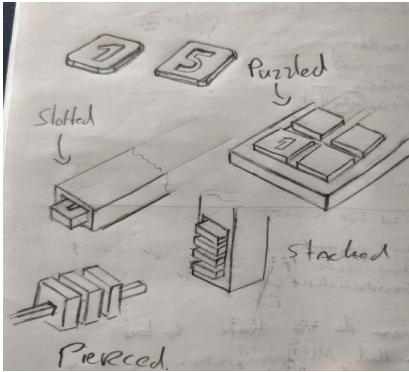 1 5
Puzzled
Slotted
1
Stacked
Piereced.